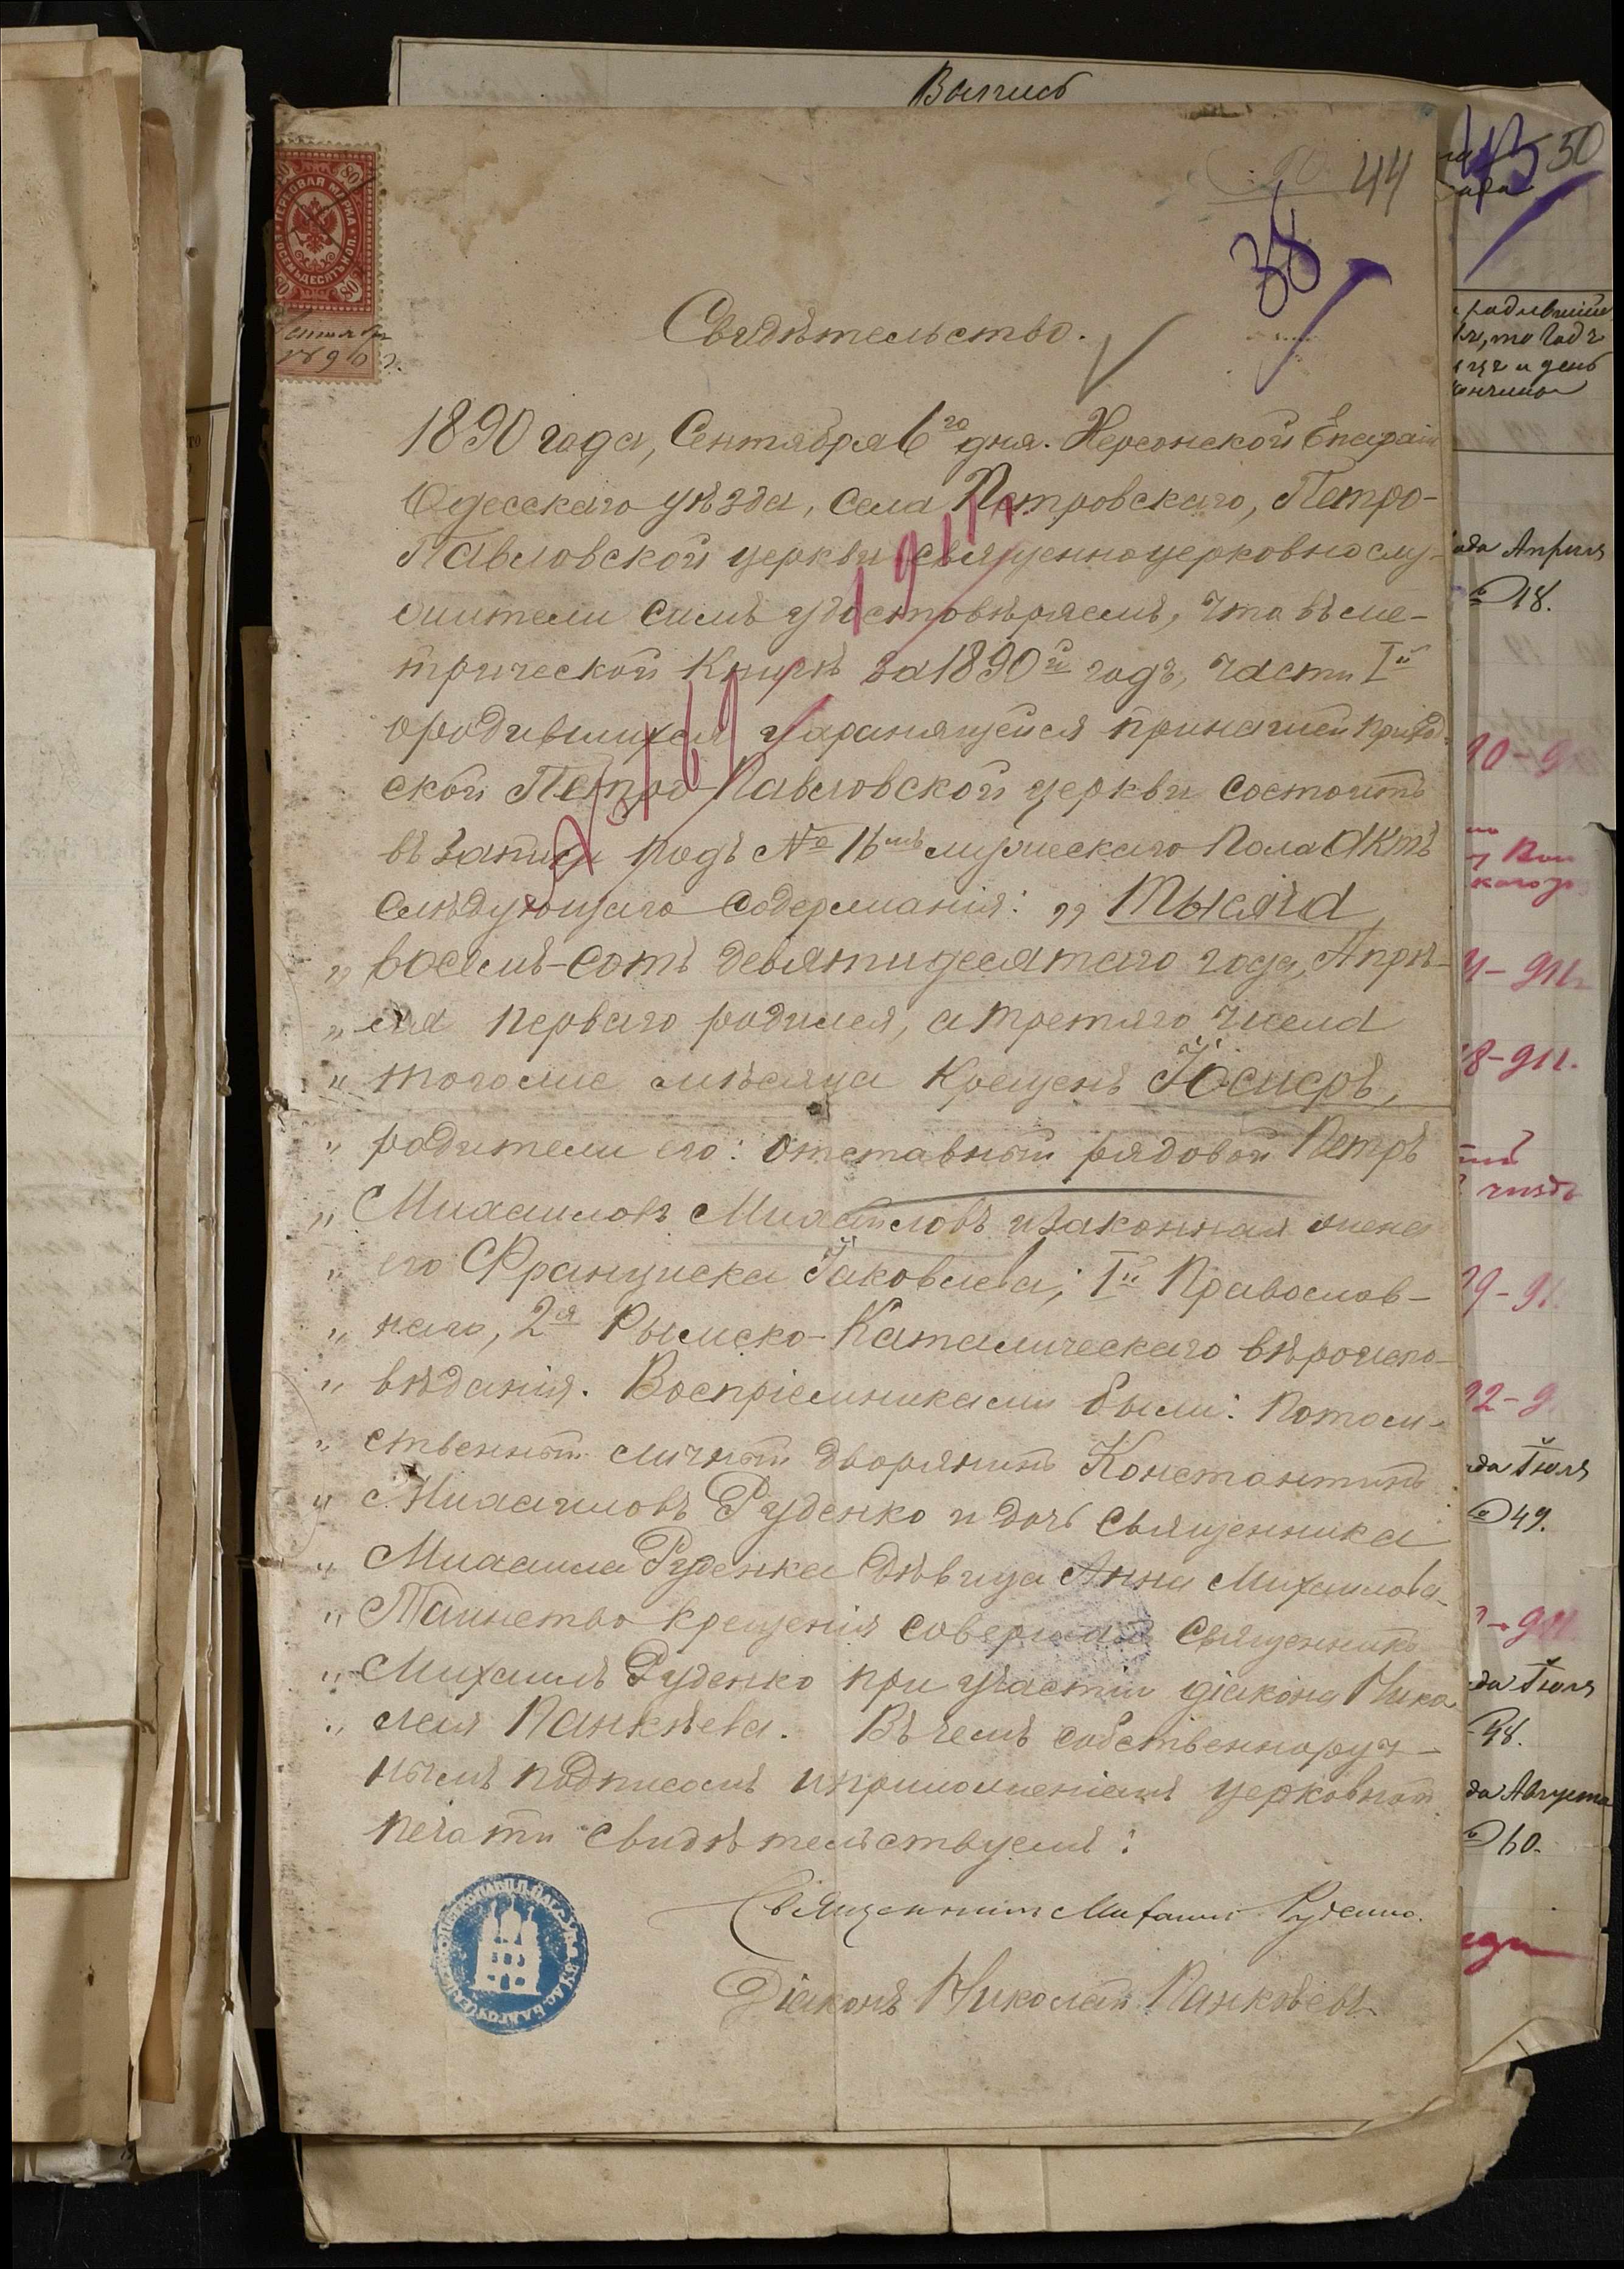 Вапись
44
50
38
45
ГЕРБОВАЯ МАРКА
ВОСЕМЬДЕСЯТЪ КОП.
80
80
80
80
Сентябр
1890 г.
Свидѣтельство.
1890 года, Сентября 6го дня. Херсонской Епархіи
Одесскаго уѣзда, села Петровскаго, Петро-
Павловской церкви священноцерковнослу-
жители симъ удостовѣряемъ, что въ ме-
трической книгѣ за 1890й годъ, части Iй
о родившихся хранящейся при нашей приход-
ской Петро-Павловской церкви состоитъ
въ записи подъ № 16мъ мужескаго пола актъ
слѣдующаго содержанія: „Тысяча
„восемь-сотъ девятидесятаго года, Апрѣ-
„ля перваго родился, а третяго числа
„тогоже мѣсяца крещенъ
„родители его: отставный рядовой Петръ
„Михаиловъ Михаиловъ и законная жена
„его Франциска Іаковлева; Iй Православ-
„наго, 2я Рымско-Католическаго вѣроиспо-
„вѣданія. Воспріемниками были: потом-
„ственный личный дворянинъ Константинъ
„Михаиловъ Руденко и дочь священника
„Михаила Руденка дѣвица Анна Михаилова.
„Таинство крещенія совершалъ священникъ
„Михаилъ Руденко при участіи діакона Нико
„лая Панкѣева. Въ чемъ собственноруч-
нымъ подписомъ и приложеніемъ церковной
печати свидѣтельствуемъ:
Священникъ Михаилъ Руденко.
Діаконъ Николай Панкѣевъ
родившійся
то годъ
и день
кончины
ода Апрѣля
18.
ода Іюля
49.
да Іюля
48.
да Августа
60.